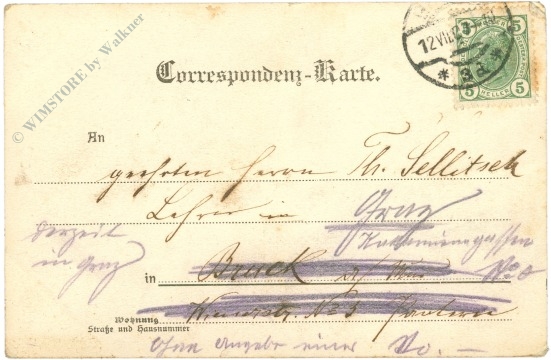 © WIMSTORE by Walkner
5 5
HELLER
12 VII
* 3d *
Correspondenz-Karte.
An
geehrten Herrn Th. Sellitsch
Lehrer in Graz
derzeit
in Graz
in Bruck a/ Mur No
Wohnung
Straße und Hausnummer
Wienerstr. No 3
Ohne Angabe einer No. —